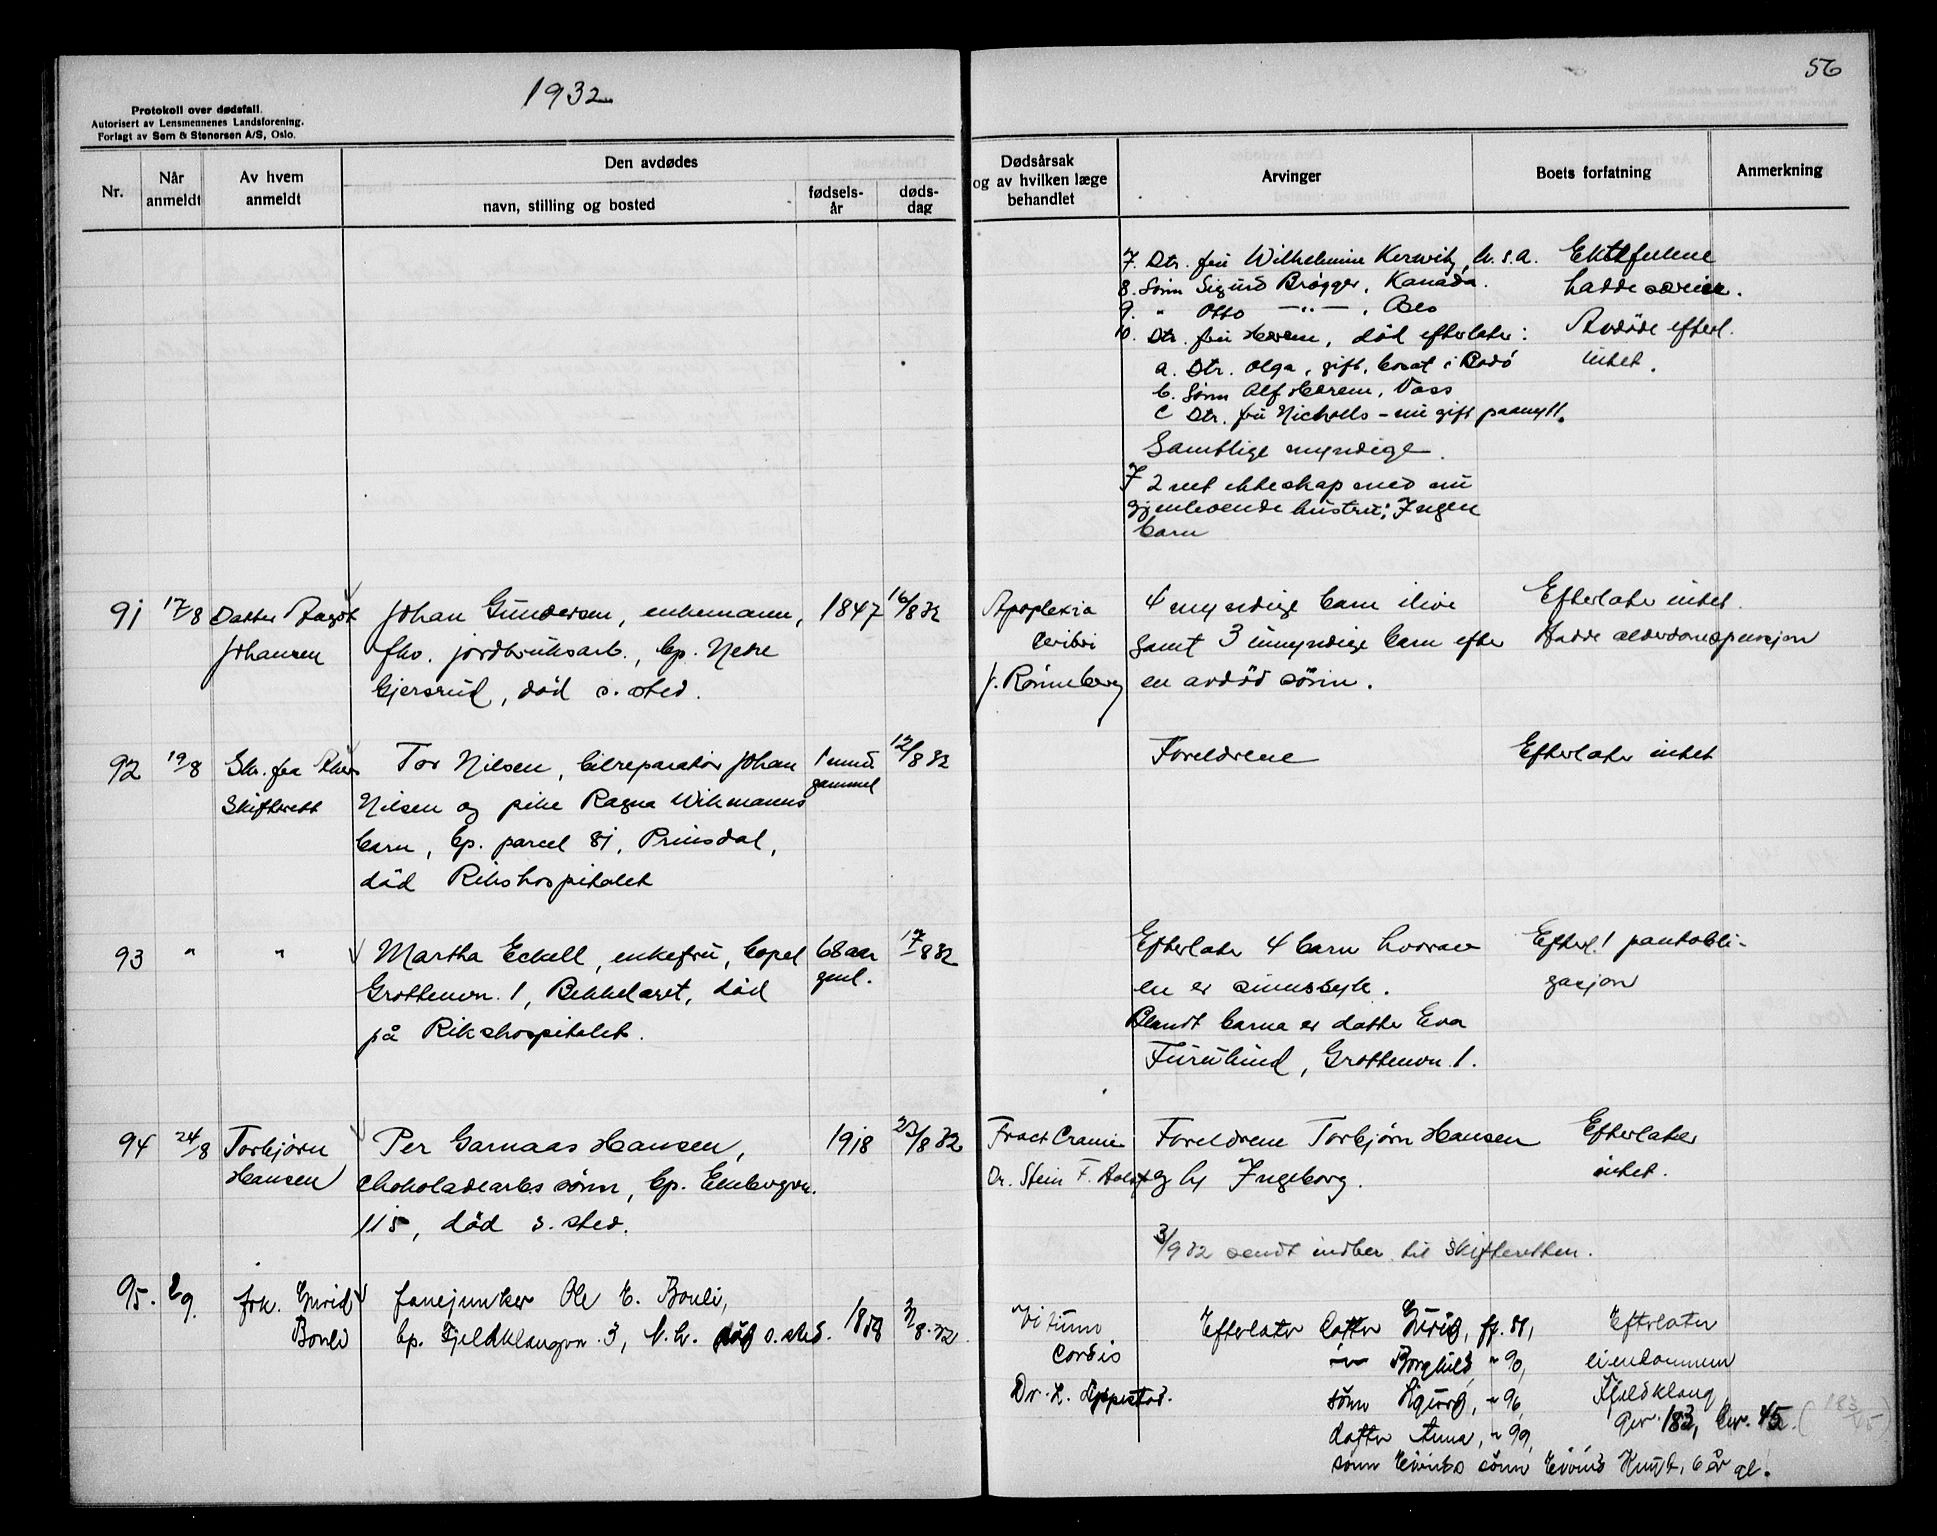 1932
56
Protokoll over dødsfall.
Autorisert av Lensmennenes Landsforening.
Forlagt av Sem & Stenersen A/S, Oslo.
Nr.
Når anmeldt
Av hvem anmeldt
Den avdødes
navn, stilling og bosted
fødsels-år
døds-dag
Dødsårsak og av hvilken læge behandlet
Arvinger
Boets forfatning
Anmerkning
7. Dtr. fru Wilhelmine U.S.A.
8. Sønn Sigurd Brøgger, Kanada.
9. " Otto —"— , Oslo
10. Dtr. fru Harem, død efterlater:
a. Dtr. Olga, gift, bosat i Bodø
b. Sønn Alf Harem, Voss
c Dtr. fru Nicholls – nu gift paanytt.
Samtlige myndige.
I 2net ekteskap med nu
gjenlevende hustru: Ingen
barn
Ektefellene
hadde særeie.
Avdøde efterl.
intet.
91
17/8
Datter Aagot
Johansen
Johan Gundersen, enkemann,
fhv. jordbruksarb., bp. Nedre
Gjersrud, død s. sted.
1847
16/8 32
Apoplexia
ceribri
J. Rønneberg
4 myndige barn ilive
samt 3 umyndige barn efter
en avdød sønn.
Efterlater intet.
Hadde alderdomspensjon
92
19/8
Skr. fra Akers
Skifterett
Tor Nilsen, bilreparatør Johan
Nilsen og pike Ragna Wikmanns
barn, bp. parcel 81, Prinsdal,
død Rikshospitalet
1 mnd
gammel
12/8 32
Foreldrene
Efterlater intet
93
"
"
Martha Eckell, enkefru, bopel
Grottenvn. 1, Bekkelaget, død
på Rikshospitalet.
68 aar
gml.
17/8 32
Efterlater 4 barn hvorav
en er sinnssyk.
Blandt barna er datter Eva
Furulund, Grottenvn. 1.
Efterl. 1 pantobli-
gasjon
94
24/8
Torbjørn
Hansen
Per Garnaas Hansen,
chokoladearbs sønn, bp. Ekebergvn.
115, død s. sted.
1918
23/8 32
Fract Cranie
Dr. Stein
Foreldrene Torbjørn Hansen
og h Ingeborg.
Efterlater
intet.
3/9 32 sendt indber. til skifteretten.
95.
2/9.
frk.
Bonli
fanejunker Ole E. Bonli,
bp. Fjeldklangvn. 3, død s. sted.
Vitium
Cordis
Dr. L. Lippestad.
Efterlater datter
Borghild, " 90,
sønn Sigurd, " 96,
datter Anna, " 99,
sønn Eivinds sønn Eivind Knut, 6 år gl.
Efterlater
eiendommen
Fjeldklang
Gnr. 183, bnr. 45.
(183/45)